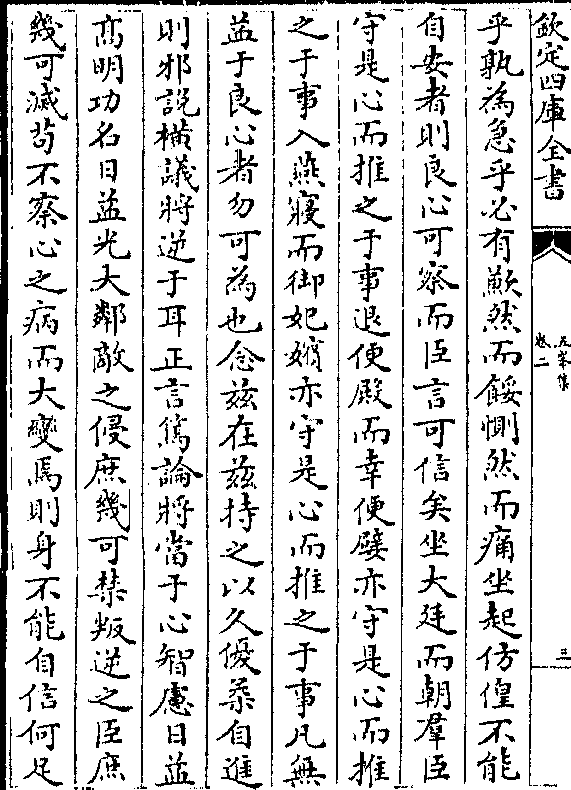 欽定四庫全書
五峯集
卷二
三
乎孰為急乎必有歉然而餒惻然而痛坐起仿偟不能
自安者則良心可察而臣言可信矣坐大廷而朝羣臣
守是心而推之于事退便殿而幸便嬖亦守是心而推
之于事入燕寢而御妃嬪亦守是心而推之于事凡無
益于良心者勿可為也念兹在兹持之以久優柔自進
則邪説橫議將逆于耳正言篤論將當于心智慮日益
髙明功名日益光大鄰敵之侵庶幾可禁叛逆之臣庶
幾可滅苟不察心之病而大變焉則身不能自信何足